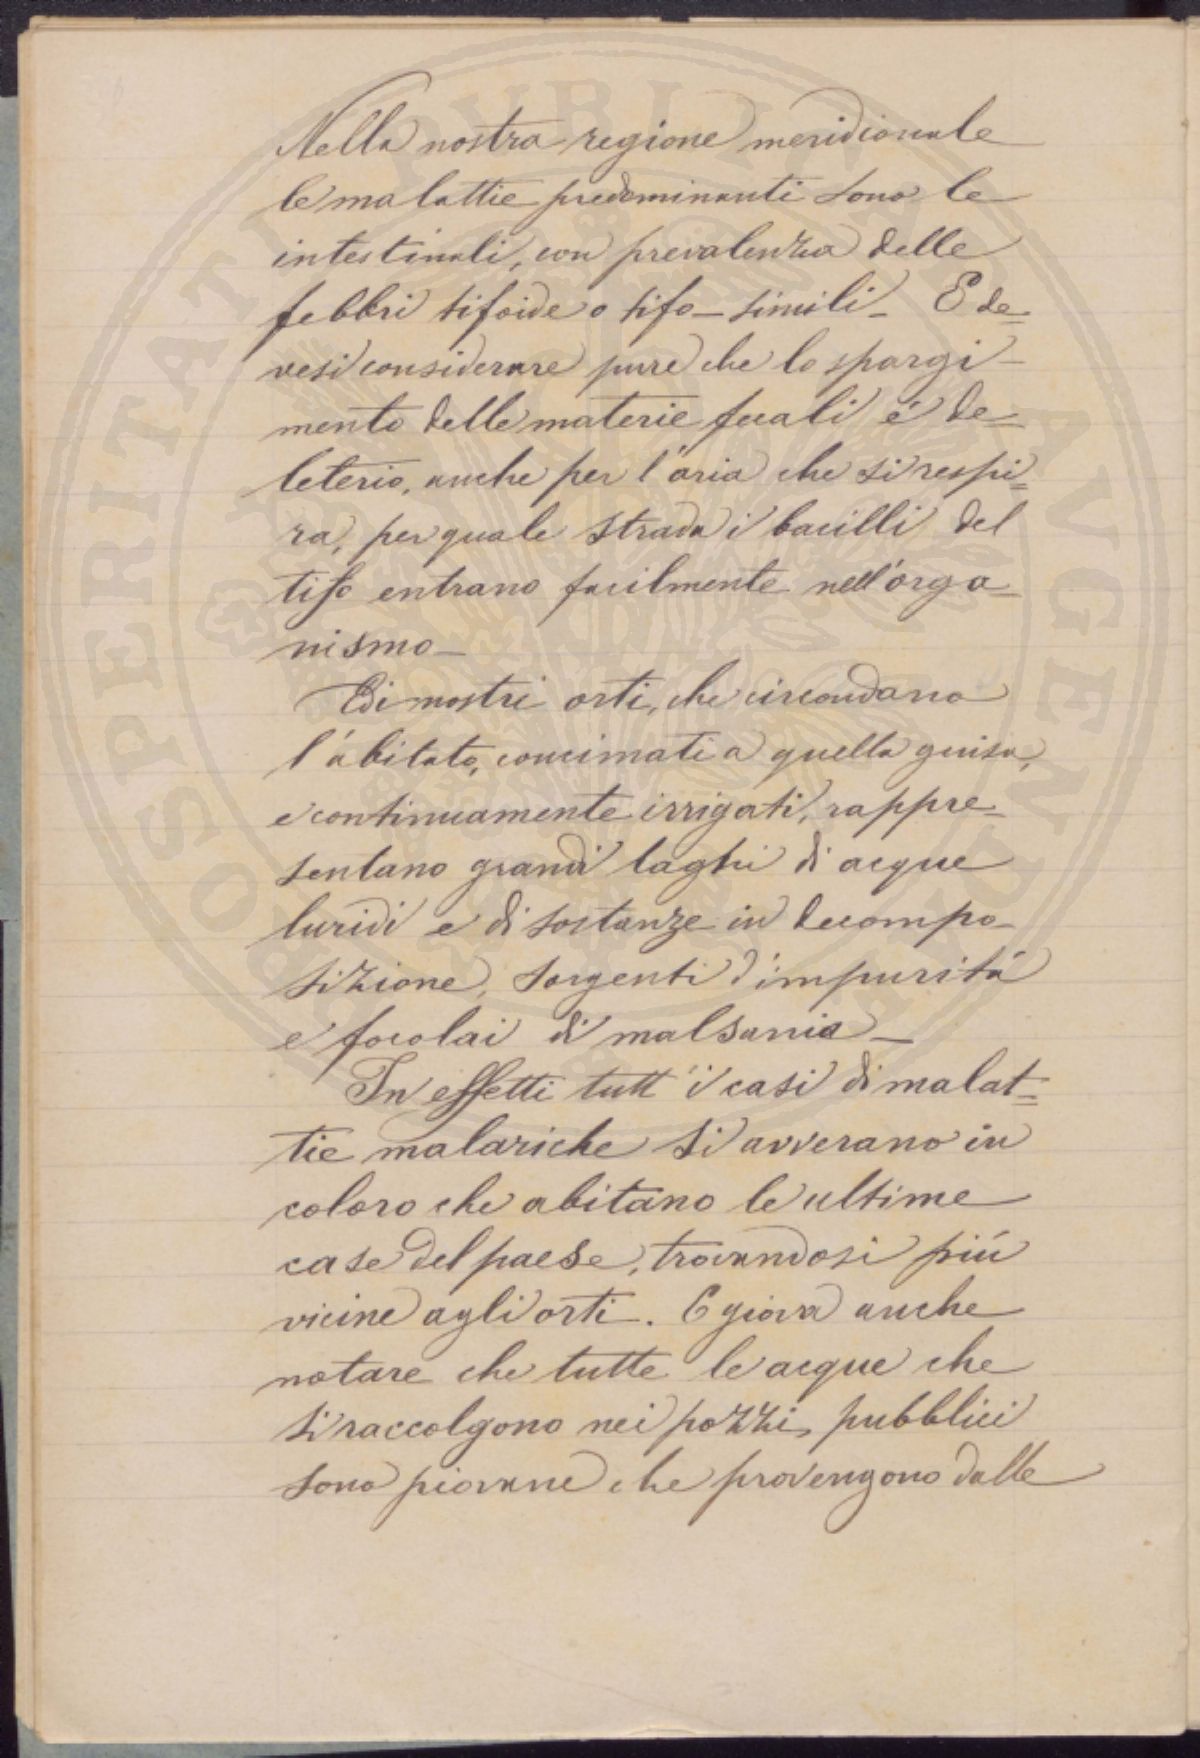 Nella nostra regione meridionale
le malattie predominanti sono le
intestinali, con prevalenza delle
febbri tifoide o tifo-simili_ E de=
vesi considerare pure che lo spargi-
mento delle materie fecali é de=
leterio, anche per l'aria che si respi=
ra, per quale strada i bacilli del
tifo entrano facilmente nell'orga=
nismo_
Ed i nostri orti, che circondano
l'abitato, concimati a quella guisa,
e continuamente irrigati, rappre=
sentano grandi laghi di acque
luridi e di sostanze in decompo-
sizione, sorgenti d'impuritá
e focolai di malsania_
In effetti tutt'i casi di malat=
tie malariche si avverano in
coloro che abitano le ultime
case del paese, trovandosi piú
vicine agli orti. E giova anche
notare che tutte le acque che
si raccolgono nei pozzi pubblici
sono piovane che provengono dalle
PROSPERITATI PVBLICAE AVGENDAE